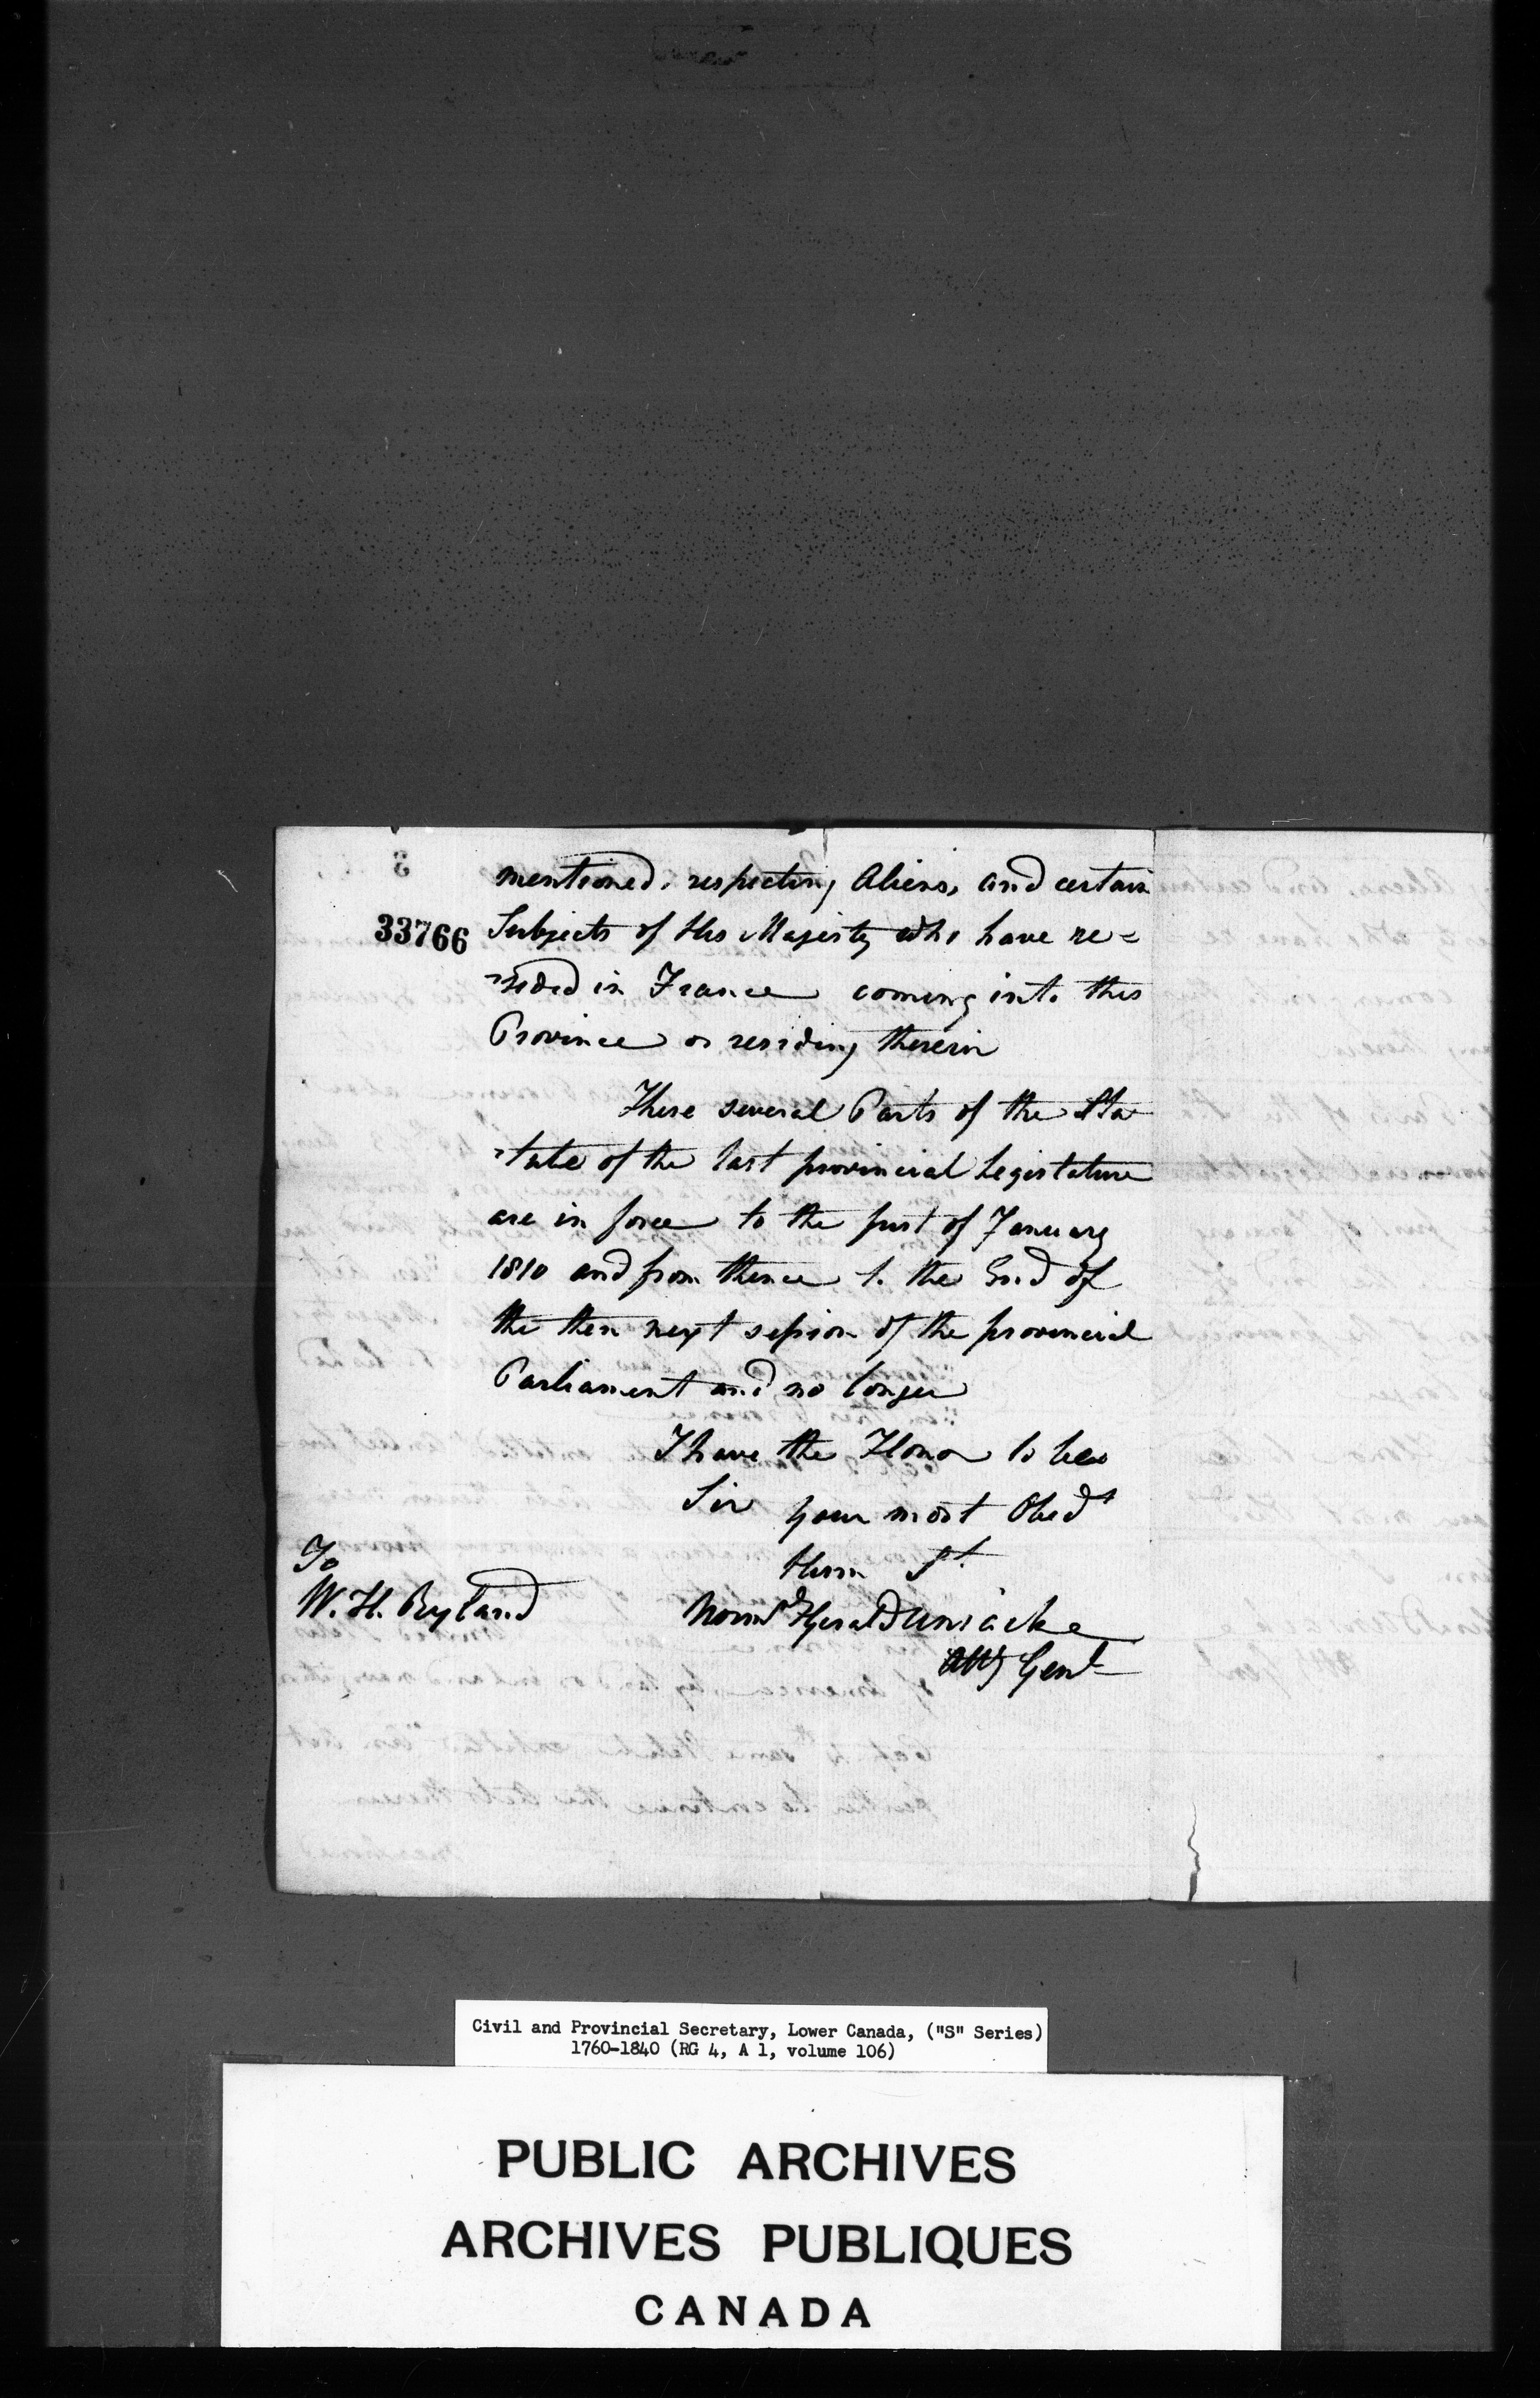 mentioned, respecting Aliens, and certain
33766 Subjects of His Majesty who have re=
-sided in France coming into this
Province or residing therein
These several Parts of the Sta
-tute of the last provincial Legislature
are in force to the first of January
1810 and from thence to the End of
the then next session of the provincial
Parliament and no longer
I have the Honor to be
Sir your most Obedt
Hum St
To
W. H. Ryland
Normd Fitzgerald Uniacke
Atty Genl
Civil and Provincial Secretary, Lower Canada, ("S" Series)
1760-1840 (RG 4, A 1, volume 106)
PUBLIC ARCHIVES
ARCHIVES PUBLIQUES
CANADA